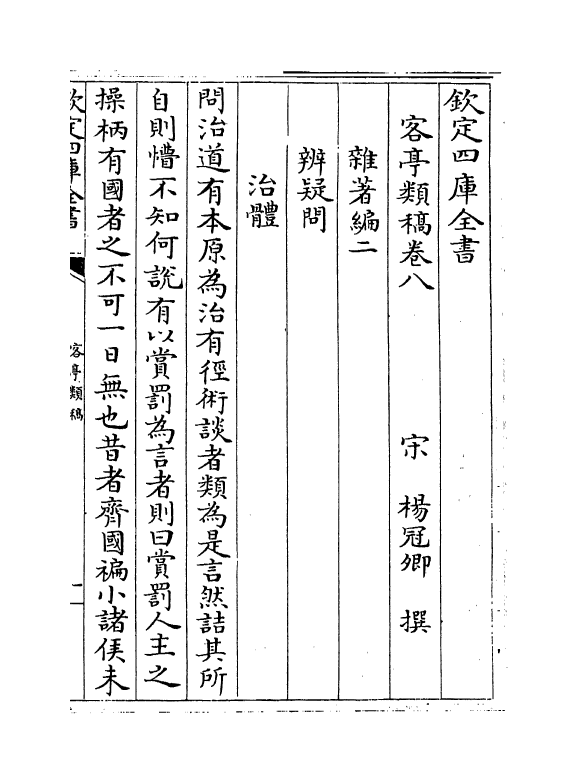 欽定四庫全書
客亭類稿卷八　宋　楊冠卿　撰
雜著編二
辨疑問
治體
問治道有本原為治有徑術談者類為是言然詰其所
自則懵不知何說有以賞罰為言者則曰賞罰人主之
操柄有國者之不可一日無也昔者齊國褊小諸侯未
欽定四庫全書
客亭類稿